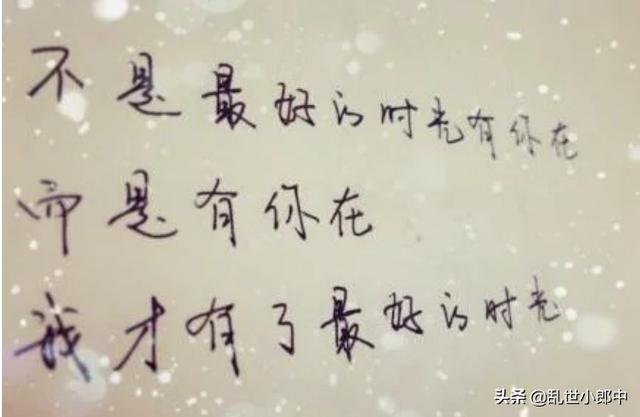 不是最好的时光有你在
而是有你在
我才有了最好的时光
头条 @乱世小郎中